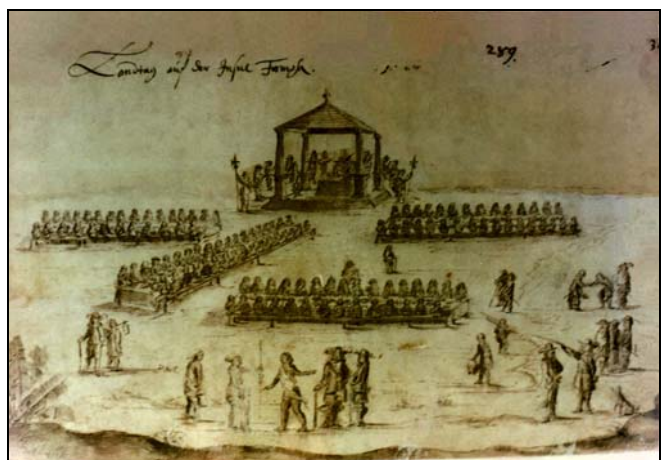 Landtag auf der Insul Formosa.
289.